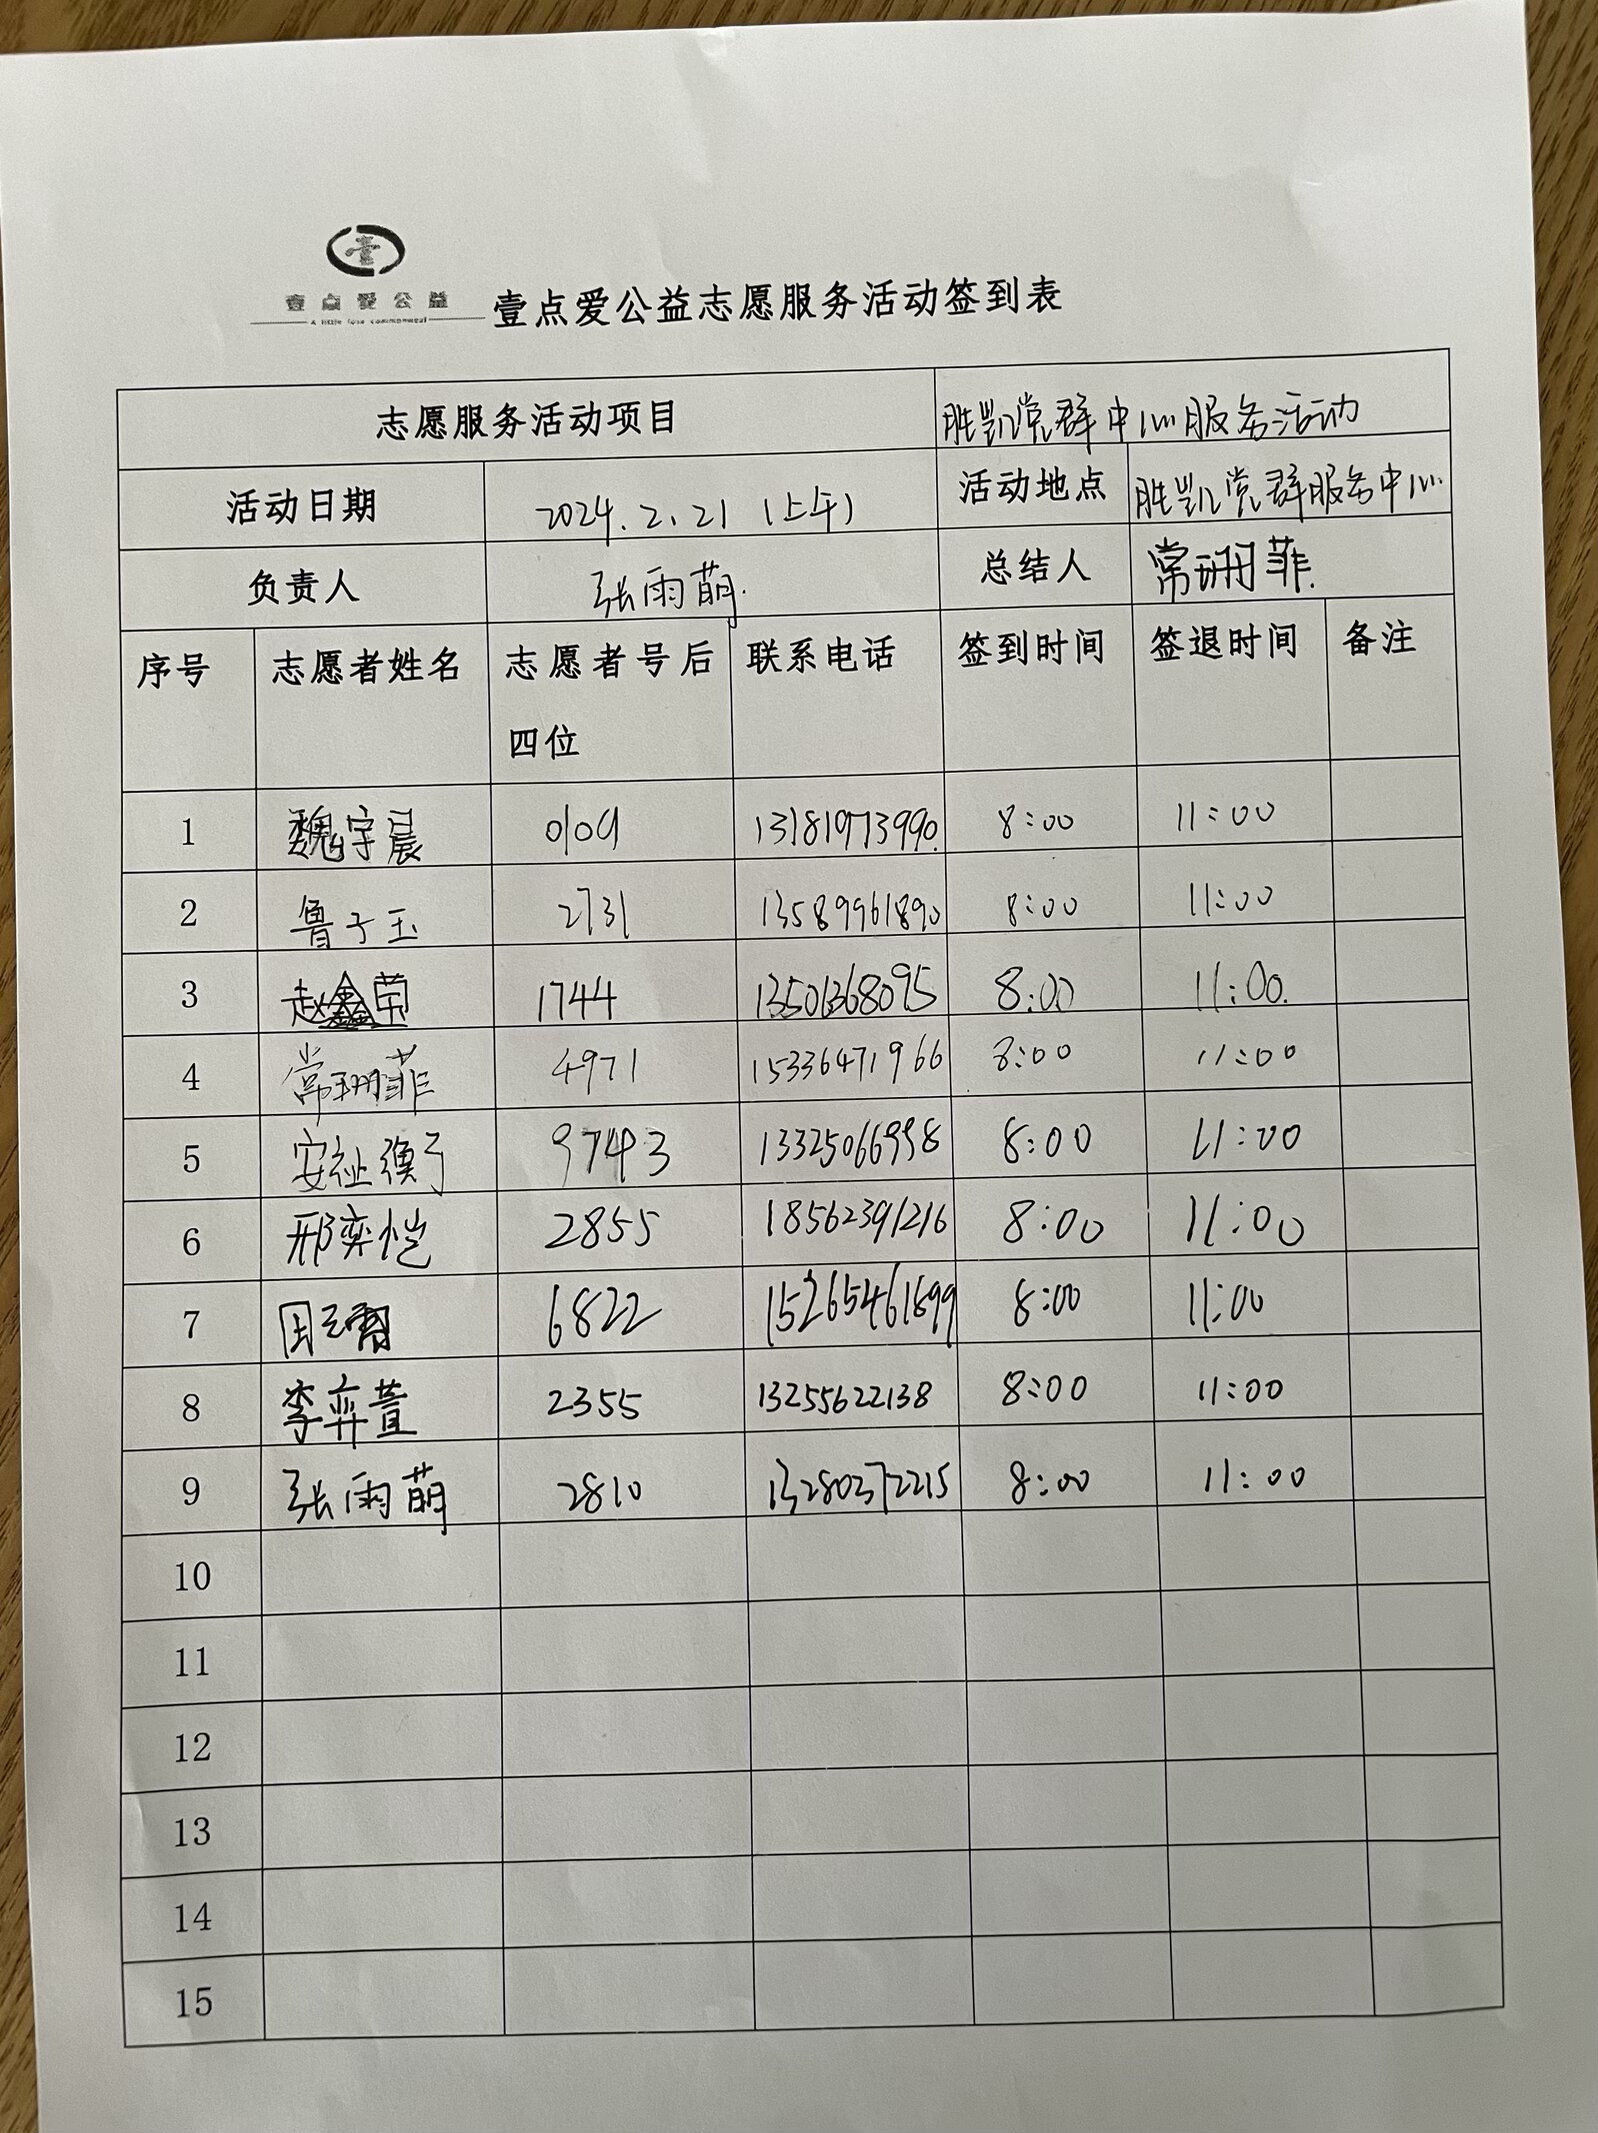 壹
壹点爱公益
壹点爱公益志愿服务活动签到表
志愿服务活动项目 胜凯党群中心服务活动
活动日期 2024.2.21（上午） 活动地点 胜凯党群服务中心.
负责人 张雨萌. 总结人 常珊菲.
序号 志愿者姓名 志愿者号后 联系电话 签到时间 签退时间 备注
四位
1 魏宇晨 0109 13181973990. 8:00 11:00
2 鲁子玉 2731 13589961890 8:00 11:00
3 赵鑫荣 1744 13501368095 8:00 11:00.
4 常珊菲 4971 15336471966 8:00 11:00
5 安祉 9743 13325066998 8:00 11:00
6 邢奕恺 2855 18562391216 8:00 11:00
7 6822 15265461899 8:00 11:00
8 李弈萱 2355 13255622138 8:00 11:00
9 张雨萌 2810 13280372215 8:00 11:00
10
11
12
13
14
15